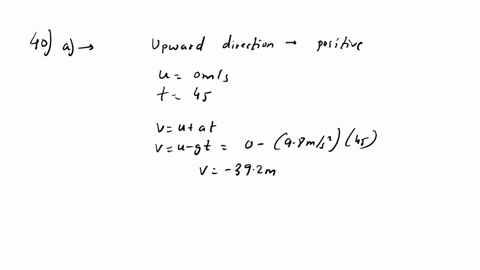 40) a) → Upward direction → positive
u = 0m/s
t = 4s
v = u + at
v = u - gt = 0 - (9.8m/s²)(4s)
v = -39.2m